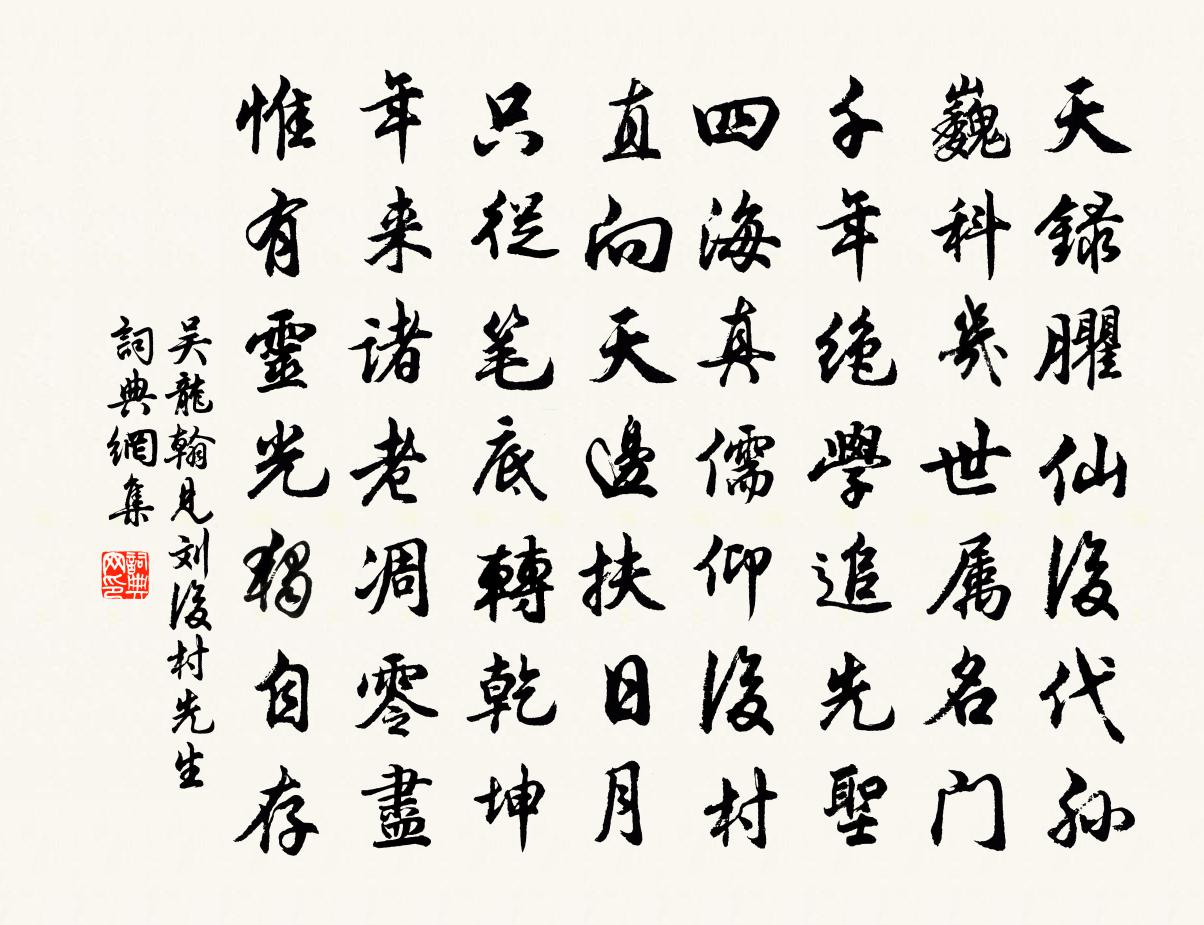 天錄臞仙後代孫
巍科幾世属名门
千年絶學追先聖
四海真儒仰後村
直向天邊扶日月
只從笔底轉乾坤
年来諸老凋零盡
惟有靈光獨自存
吴龍翰見刘後村先生
詞典網集
詞典
网印